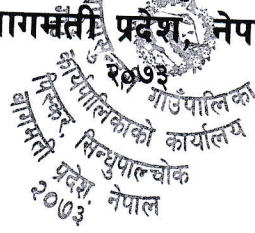 बागमती प्रदेश, नेप
२०७३
गाउँपालिका
कार्यपालिकाको कार्यालय
सिन्धुपाल्चोक
बागमती प्रदेश, नेपाल
२०७३